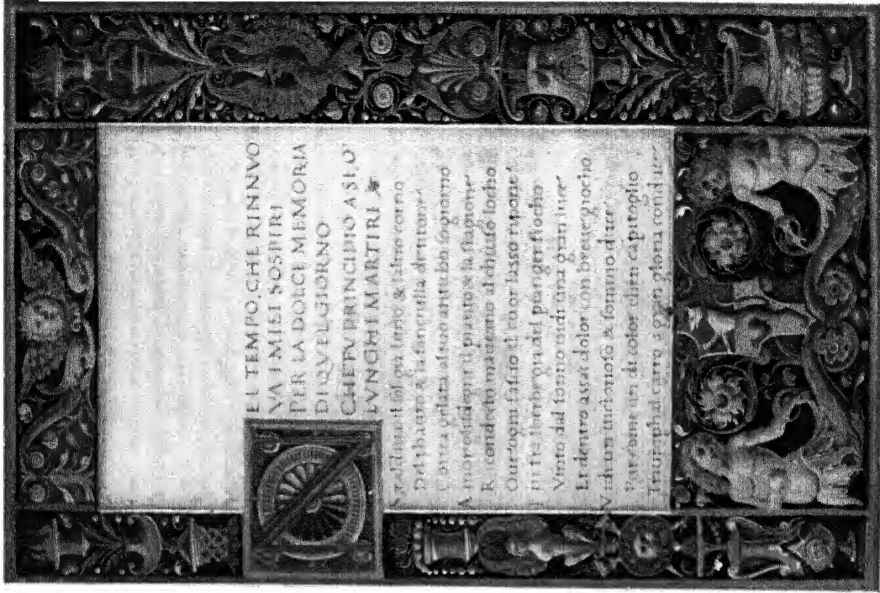 N EL TEMPO, CHE RINNVO
VA I MIEI SOSPIRI
PER LA DOLCE MEMORIA
DI QVEL GIORNO
CHE FV PRINCIPIO A SI
LVNGHI MARTIRI
il sol gia luno & laltro corno
Del thauro & la fanciulla de titone
Correa gelata al suo anticho sogiorno
Amor gli sdegni il pianto & la stagione
Ricondocto maueano al chiuso locho
Ouogni fascio il cuor lasso ripone
Iui fra lherbe gia del pianger fiocho
Vinto dal sonno uidi una gran luce
Et dentro assai dolor con breue giocho
Vidi un uictorioso & sommo duce
Pur come un di color chen capitoglio
Triumphal carro a gran gloria conduce